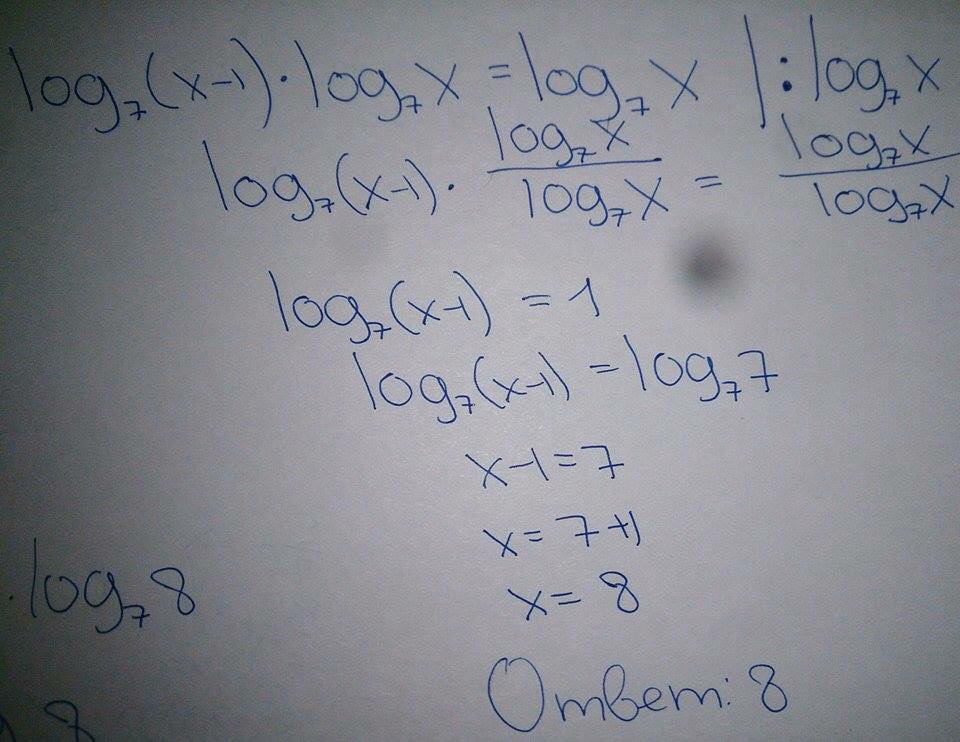 log₇(x-1)·log₇x = log₇x |:log₇x
log₇(x-1)· log₇x/log₇x = log₇x/log₇x
log₇(x-1) = 1
log₇(x-1) = log₇7
x-1=7
x= 7+1
x= 8
·log₇8
8
Ответ: 8